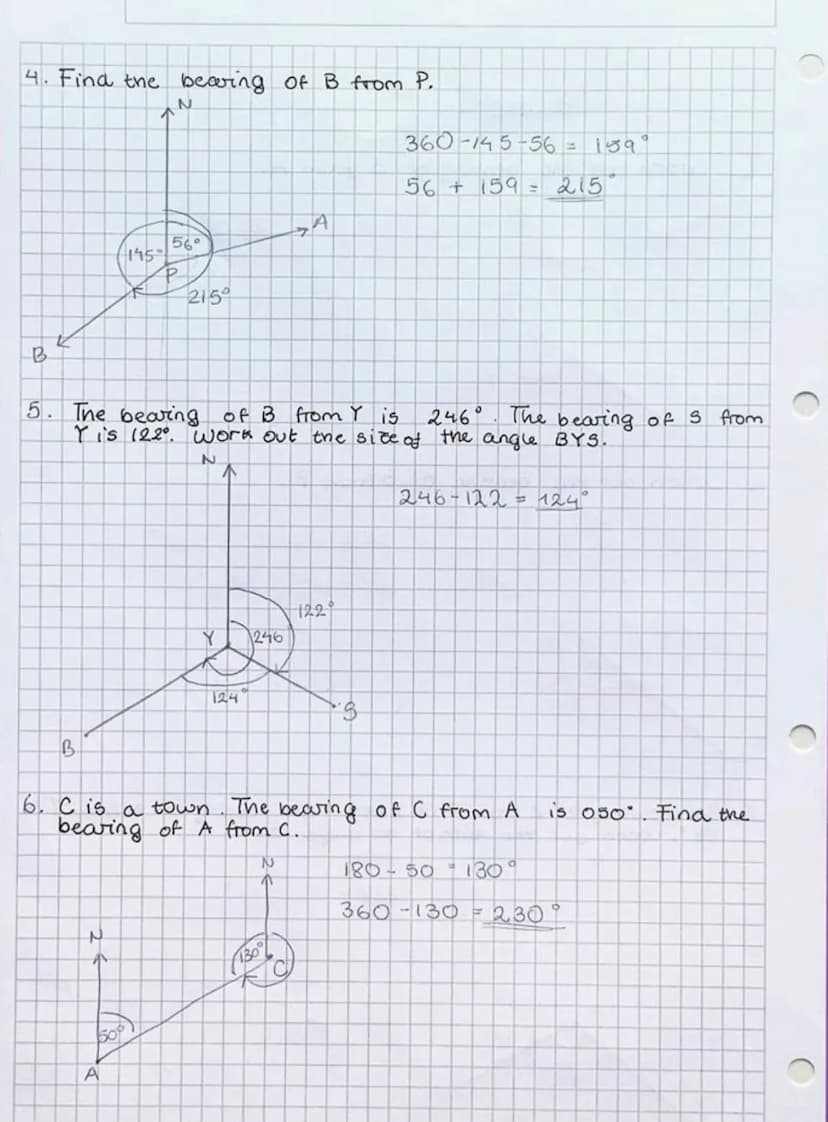 4. Find the bearing of B from P.
N
360 - 145 - 56 = 159°
56 + 159 = 215°
A
145° 56°
P
215°
B
5. The bearing of B from Y is 246°. The bearing of S from
Y is 122°. Work out the size of the angle BYS.
N
246 - 122 = 124°
122°
Y 246
124°
S
B
6. C is a town. The bearing of C from A is 050°. Find the
bearing of A from C.
N 180 - 50 = 130°
360 - 130 = 230°
N
130° C
50°
A